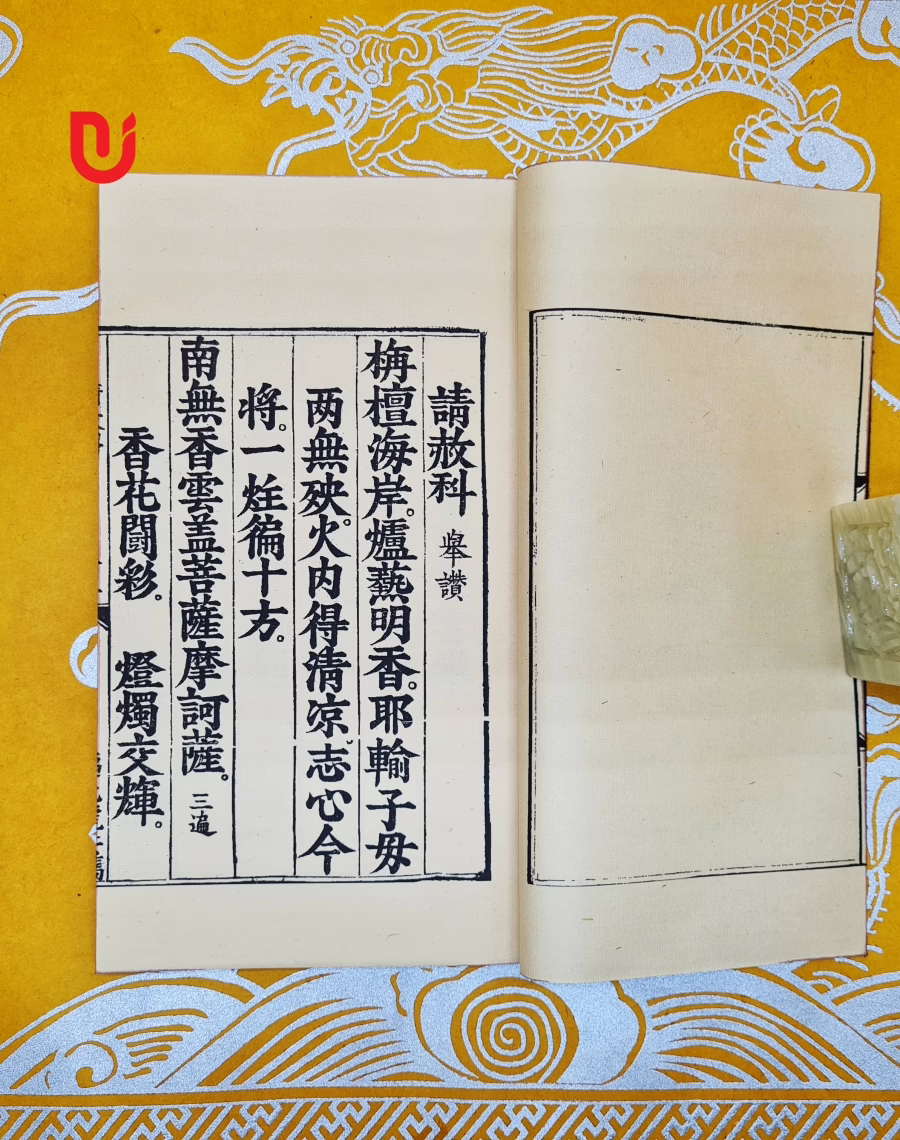 請赦科 舉讃
栴檀海岸。爐爇明香。耶輸子毋
两無殃。火内得清凉。志心今
将。一炷徧十方。
南無香雲盖菩薩摩訶薩。三遍
香花闘彩。 燈燭交輝。